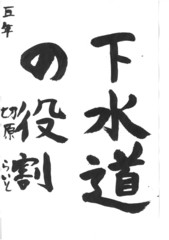 下水道
の役割
五年
切原らいと